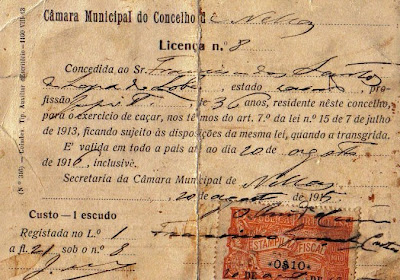 Câmara Municipal do Concelho de Nellas
Licença n.º 8
Concedida ao Sr. Francisco dos Santos
estado casado, pro-
fissão de 36 anos, residente nêste concelho,
para o exercicio de caçar, nos têrmos do art. 7.º da lei n.º 15 de 7 de julho
de 1913, ficando sujeito às disposições da mesma lei, quando a transgrida.
E' valida em todo o país até ao dia 20 de agosto
de 1916, inclusivè.
Secretaria da Câmara Municipal de Nellas,
20 de agosto de 191
Custo—1 escudo
Registada no L.º 1
a fl. 21 sob o n.º 8
ESTAMPILHA FISCAL
(N.º 316) — Coimbra Tip. Auxiliar d'Escritório—1400 VIII-13